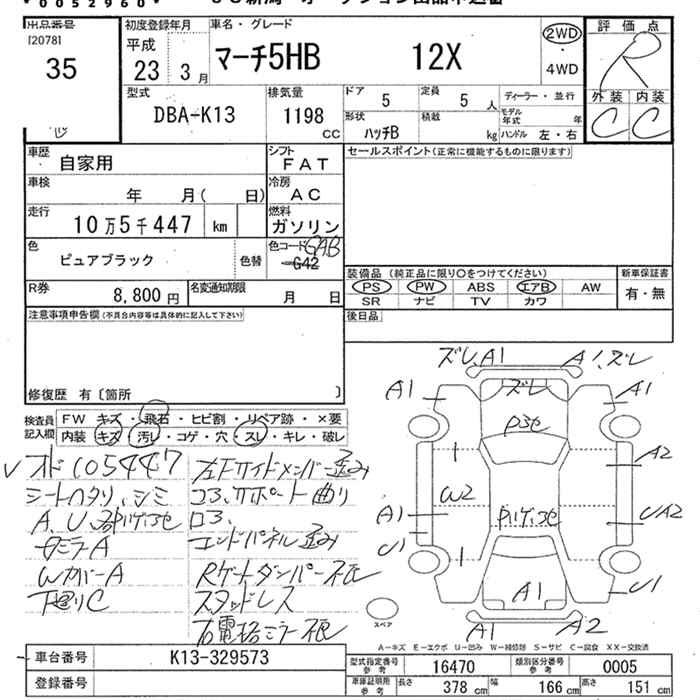 0052960
35
出品番号
[2078]
初度登録年月
平成
23 3 月
車名・グレード
マーチ5HB 12X
2WD
・
4WD
評 価 点
R
外 装 内 装
C C
型式
DBA-K13
排気量
1198
CC
ドア
5
定員
5 人
形状
ハッチB
積載
kg
ディーラー・並行
モデル年式 年
ハンドル 左・右
車歴
自家用
シフト
FAT
車検
年 月( 日)
冷房
AC
走行
10万5千447 km
燃料
ガソリン
色
ピュアブラック
色替
色コード
GAB
G42
R券
8,800 円
名変通知期限
月 日
セールスポイント(正常に機能するものに限ります)
装備品 (純正品に限り○をつけてください)
PS PW ABS エアB AW
SR ナビ TV カワ
新車保証書
有・無
後日品
注意事項申告欄(不具合内容等は具体的に記入して下さい)
修復歴 有〔箇所 〕
検査員記入欄
FW キズ・飛石・ヒビ割・リペア跡・×要
内装 キズ・汚レ・コゲ・穴・スレ・キレ・破レ
オド105447
シートヘタリ、シミ
A、U、
ミラーA
WカバーA
下廻りC
左Fサイドメンバー歪み
コアサポート曲り
エンドパネル歪み
Rゲートダンパー
スタッドレス
右電格ミラー
ズレ、A1 A1、ズレ
A1 ズレ A1
A2
W2
A1 UA2
U1 U1
A1
A1 A2
スペア
A-キズ E-エクボ U-凹み W-補修跡 S-サビ C-腐食 XX-交換済
車台番号
K13-329573
登録番号
型式指定番号 参考
16470
類別区分番号 参考
0005
車庫証明用 参考
長さ 378 cm 幅 166 cm 高さ 151 cm